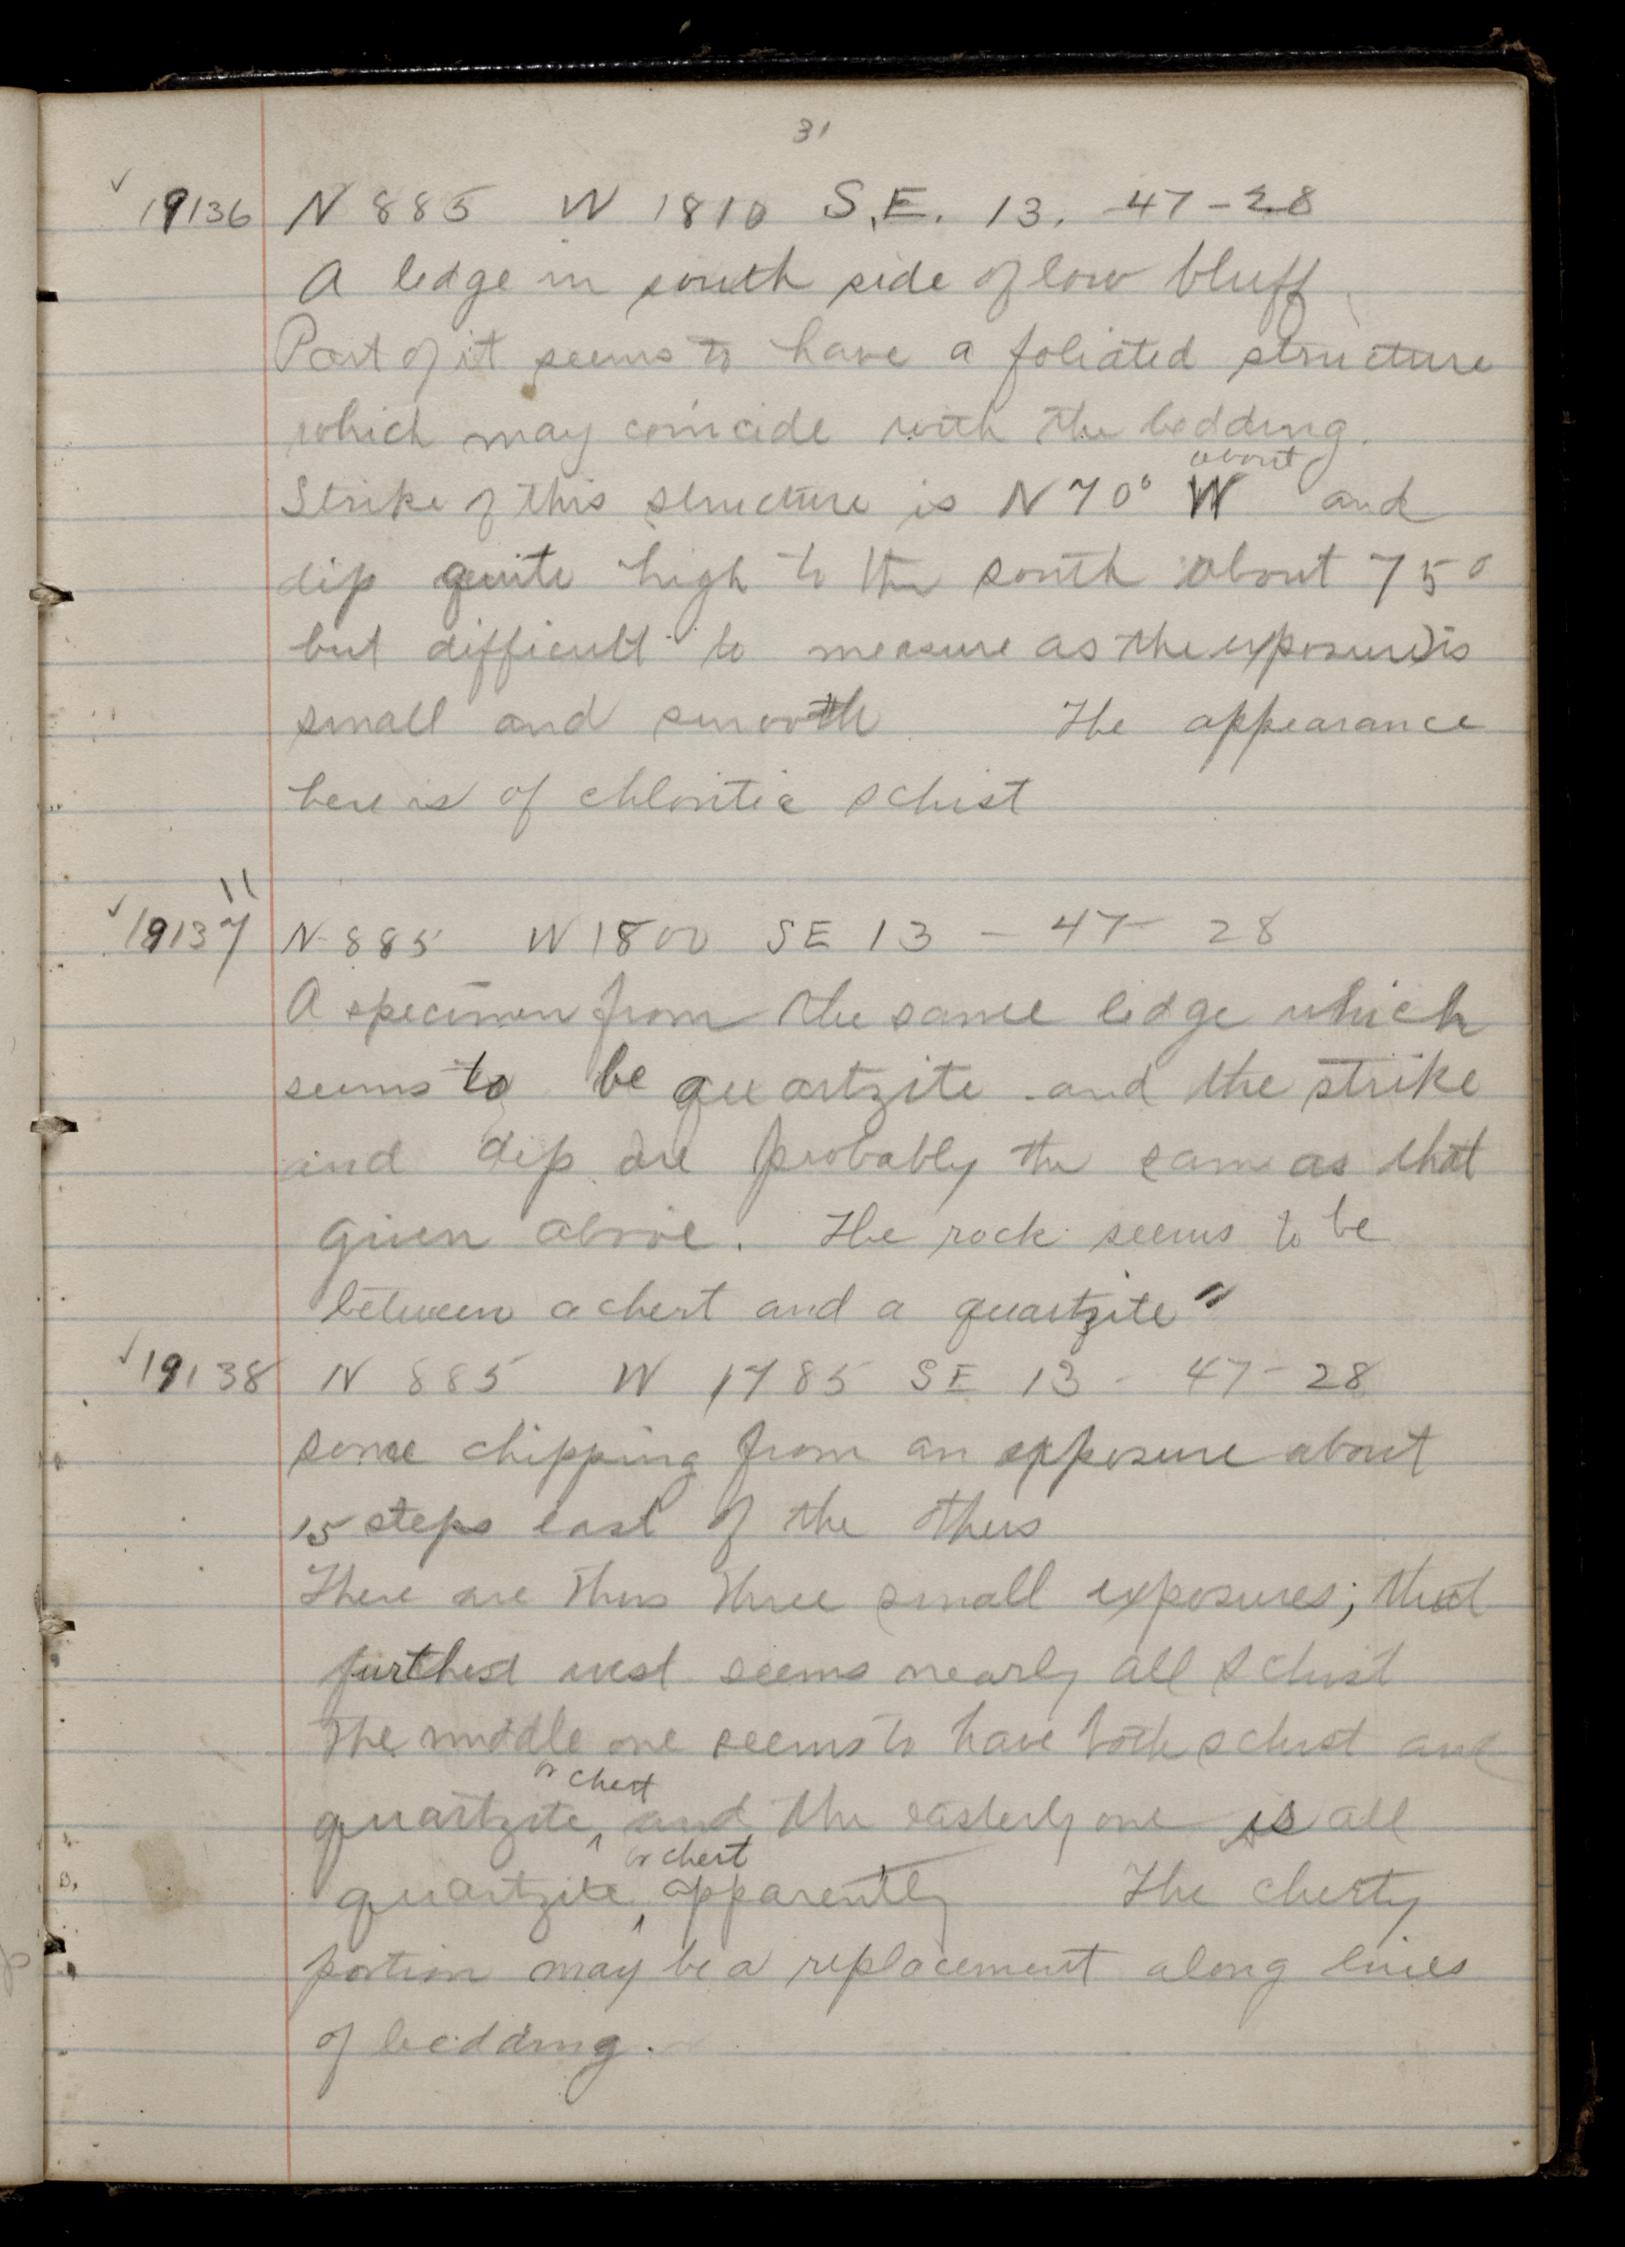 31
✓ 19136 N 885 W 1810 S.E. 13. 47-28
A ledge in south side of low bluff.
Part of it seems to have a foliated structure
which may coincide with the bedding.
about
Strike of this structure is N 70° W and
dip quite high to the south about 75°
but difficult to measure as the exposure is
small and smooth The appearance
here is of chloritic schist
"
✓ 19137 N 885 W 1800 SE 13 - 47- 28
A specimen from the same ledge which
seems to be quartzite and the strike
and dip are probably the same as that
given above. The rock seems to be
between a chert and a quartzite "
✓ 19138 N 885 W 1785 SE 13 - 47- 28
some chipping from an opposure about
15 steps east of the
There are thus three small exposures; that
furthest west seems nearly all schist
The middle one seems to have both schist and
or chert
quartzite ^ and the easterly one is all
or chert
quartzite ^ apparently The cherty
portion may be a replacement along lines
of bedding.